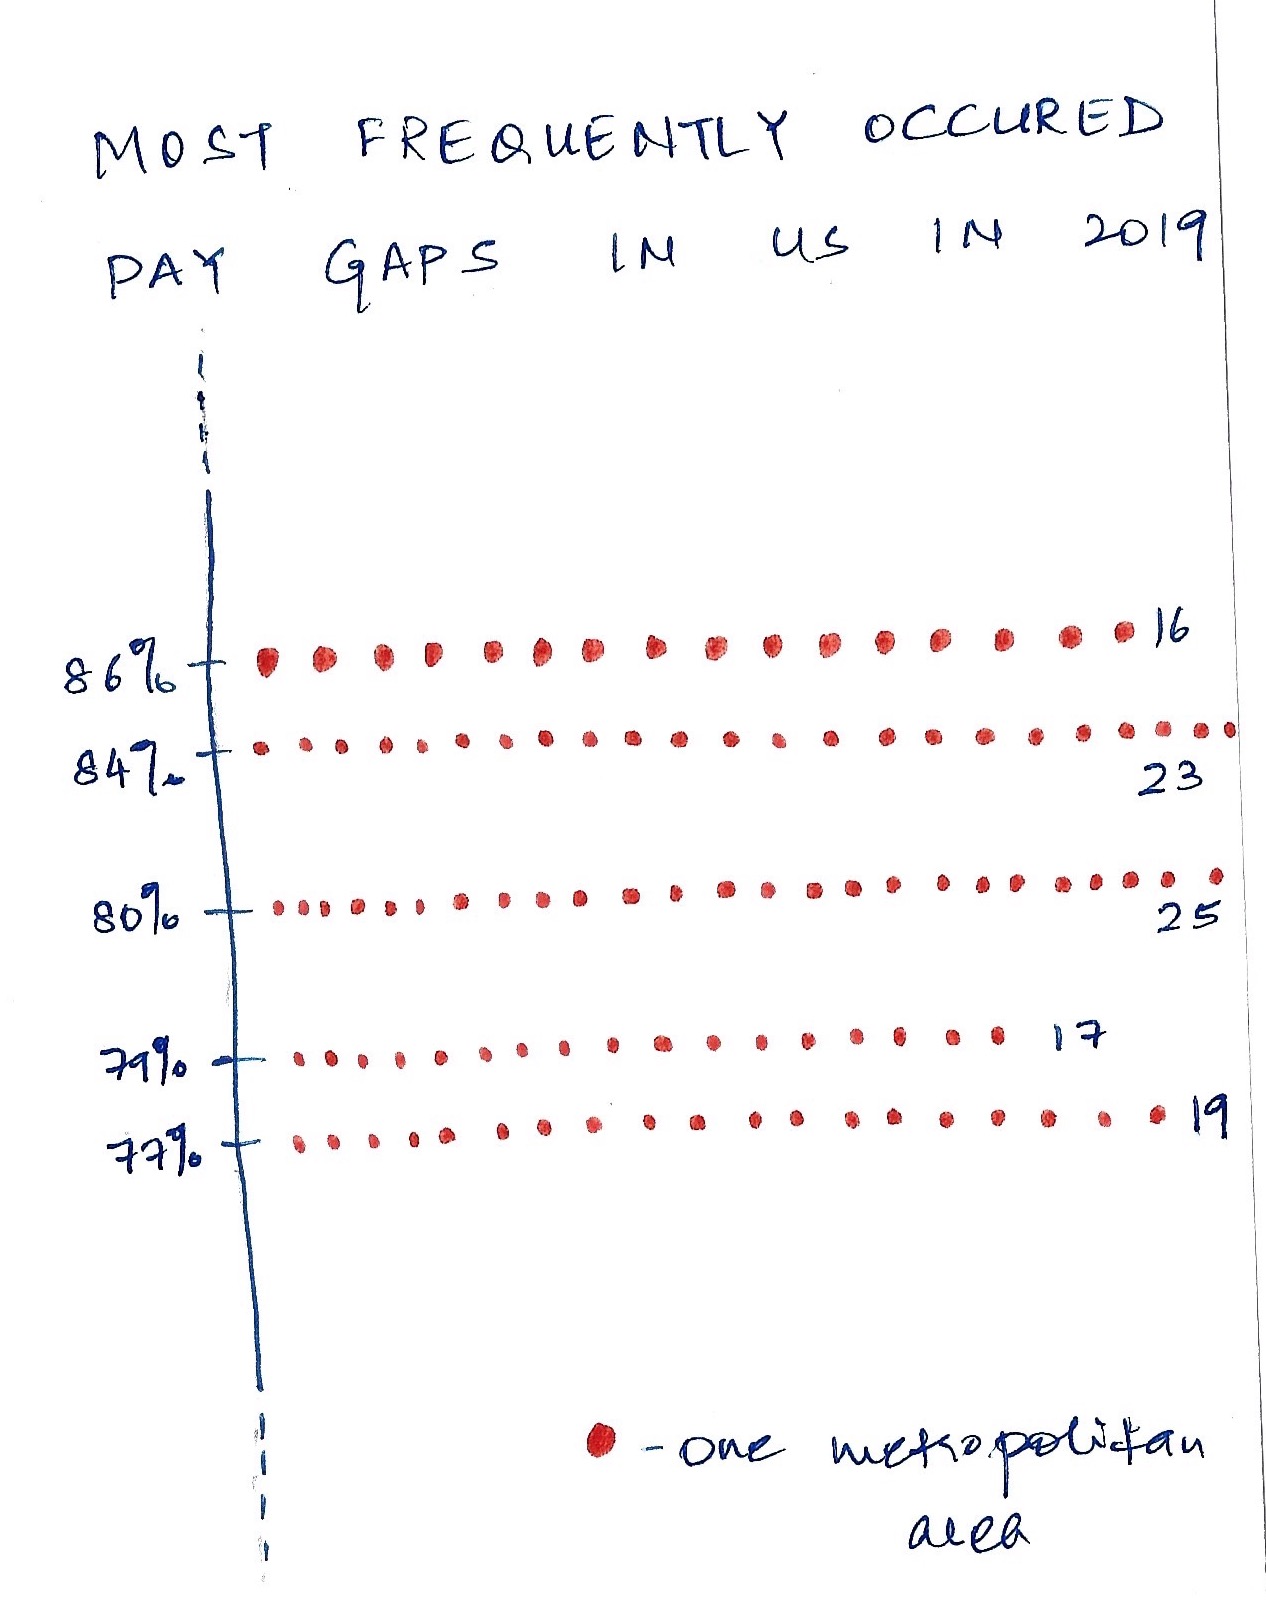 MOST FREQUENTLY OCCURED
PAY GAPS IN US IN 2019
86% 16
84%
23
80%
25
79% 17
77% 19
- one metropolitan
area